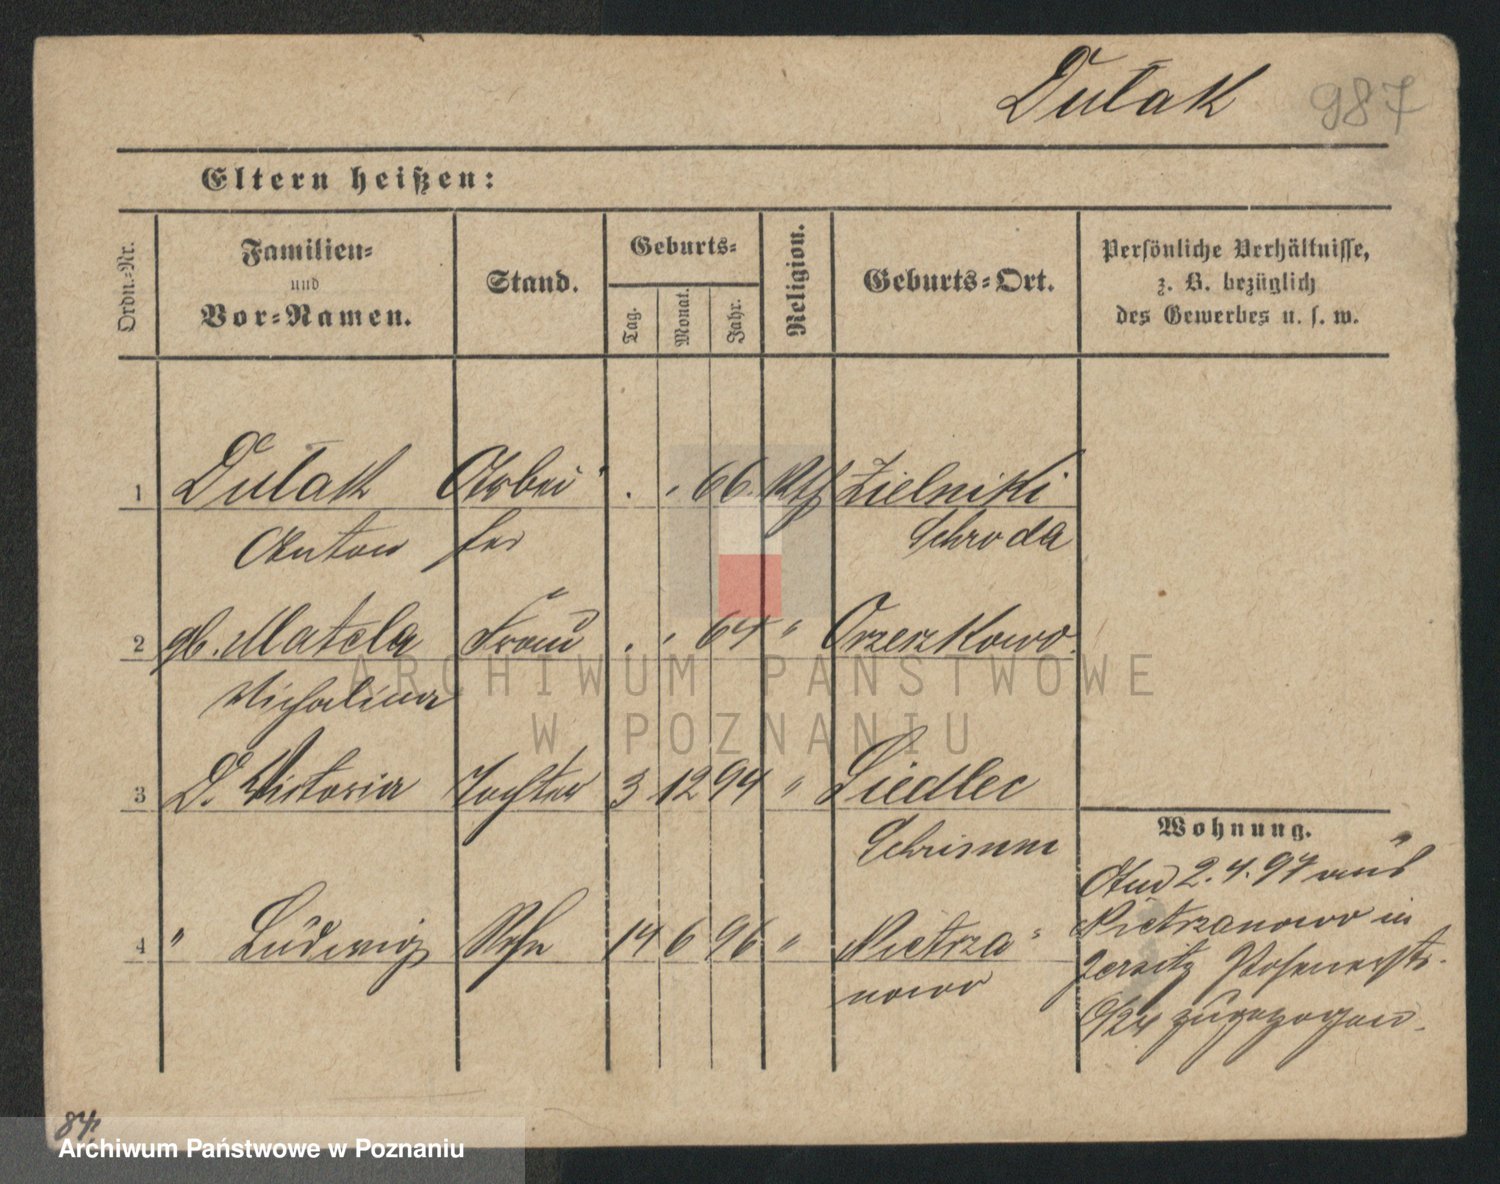 Dutak 987
Eltern heißen:
Ordn.-Nr.
Familien-
und
Vor-Namen.
Stand.
Geburts-
Tag.
Monat.
Jahr.
Religion.
Geburts-Ort.
Persönliche Verhältnisse,
z. B. bezüglich
des Gewerbes u. s. w.
1 Dutak Arbei . . 66 Kth Zielniki
Anton ter Schroda
2 gb. Matela Frau . . 64 " Orzeszkowo
Michalina
3 D. Victoria Tochter 3 12 94 " Siedlec
Schrimm
4 " Ludwig Sohn 14 6 96 " Pietrza-
nowo
Wohnung.
Am 2.4.97 aus
Pietrzanowo in
Jersitz Posenerstr.
zugezogen.
ARCHIWUM PAŃSTWOWE
W POZNANIU
84.
Archiwum Państwowe w Poznaniu